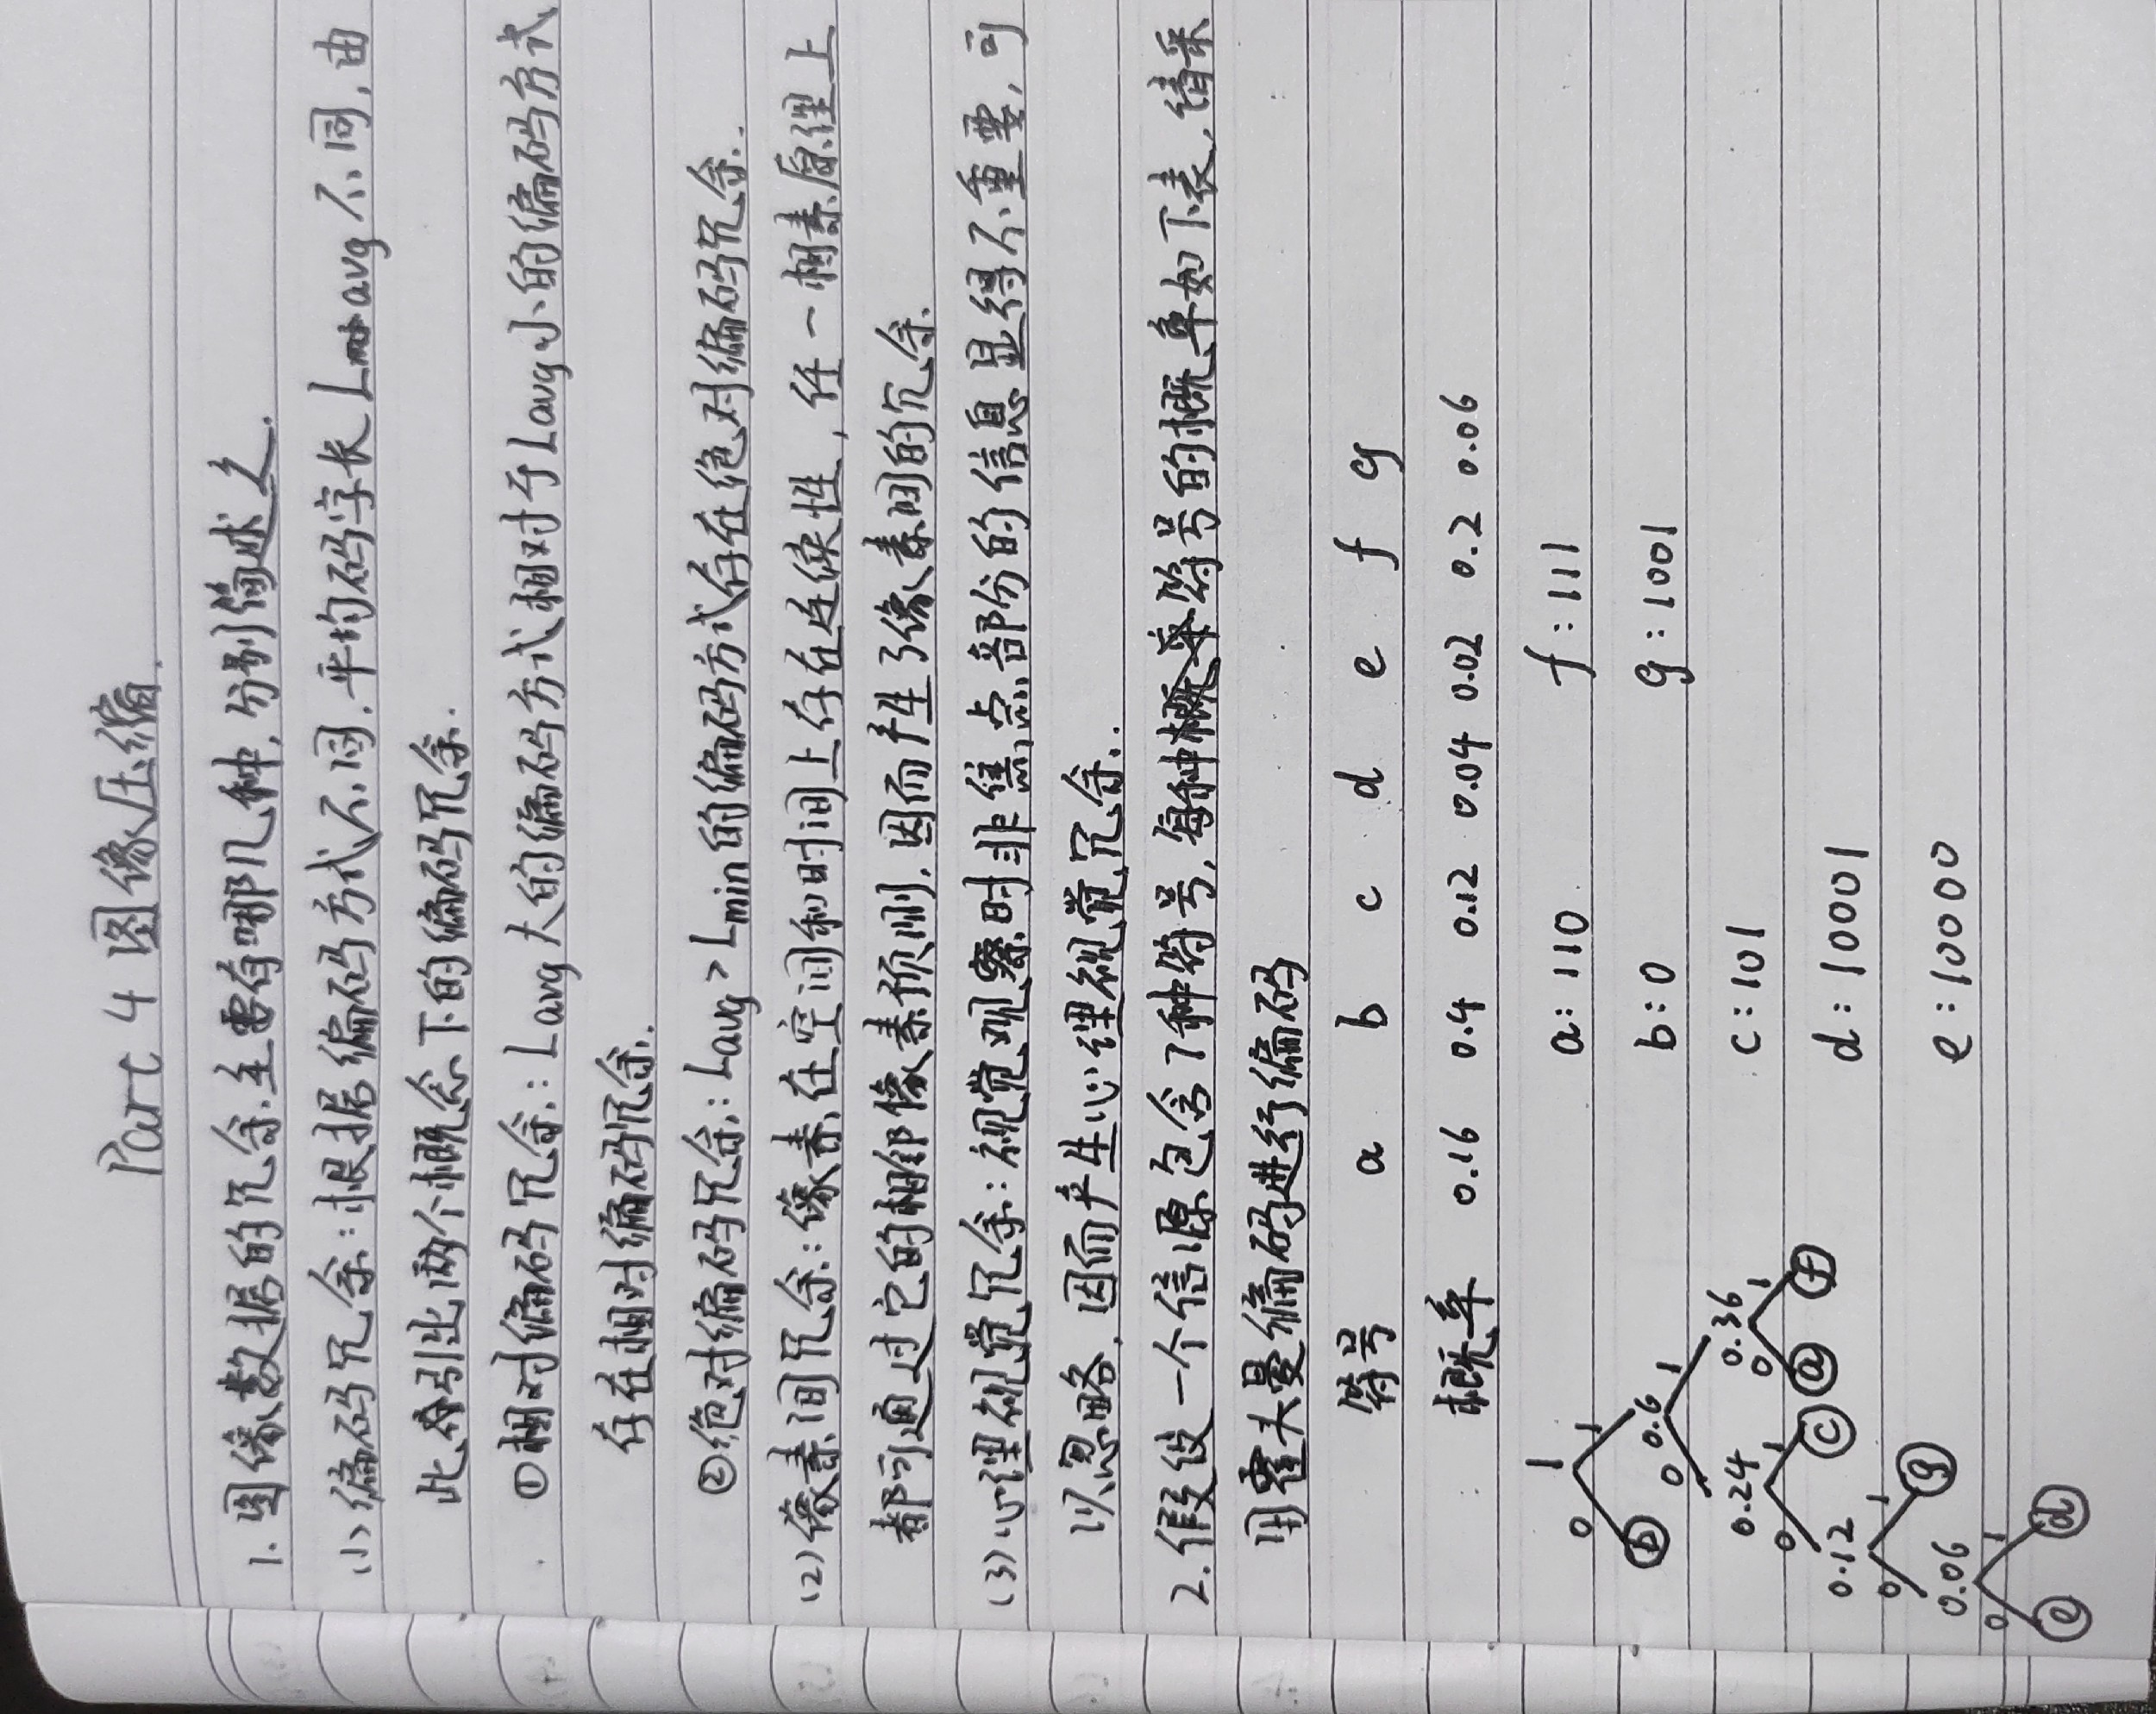 Part 4 图像压缩.
1. 图像数据的冗余主要有哪几种, 分别简述之.
(1) 编码冗余: 根据编码方式不同, 平均码字长 Lavg 不同, 由
此引出两个概念下的编码冗余.
①相对编码冗余: Lavg大的编码方式相对于Lavg小的编码方式
存在相对编码冗余.
②绝对编码冗余: Lavg > Lmin 的编码方式存在绝对编码冗余.
(2) 像素间冗余: 像素在空间和时间上存在连续性, 任一相素原理上
都可通过它的相邻像素预测, 因而产生了像素间的冗余.
(3) 心理视觉冗余: 视觉观察时非焦点部分的信息显得不重要, 可
以忽略, 因而产生心理视觉冗余.
2. 假设一个信源包含7种符号, 每种符号的概率如下表, 请采
用霍夫曼编码进行编码
符号 a b c d e f g
概率 0.16 0.4 0.12 0.04 0.02 0.2 0.06
1
a: 110 f: 111
0 1
b 0.6
b: 0 g: 1001
0 1
0.24 0.36
c: 101
0 1 0 1
c a f
0.12
d: 10001
0 1
g
0.06
e: 10000
0 1
e d